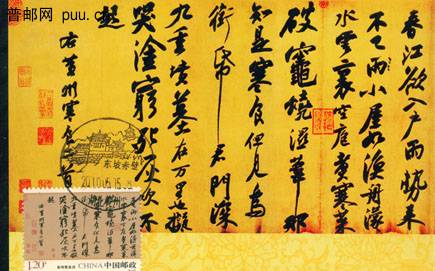 普邮网 puu.c
春江欲入戶雨勢来
不已雨小屋如漁舟濛々
水雲裏空庖煮寒菜
破竈燒濕葦那
知是寒食但見烏
銜帋君門深
九重墳墓在万里也擬
哭塗窮死灰吹不
起
右黄州寒食二首
东坡赤壁
1.20元
CHINA 中国邮政